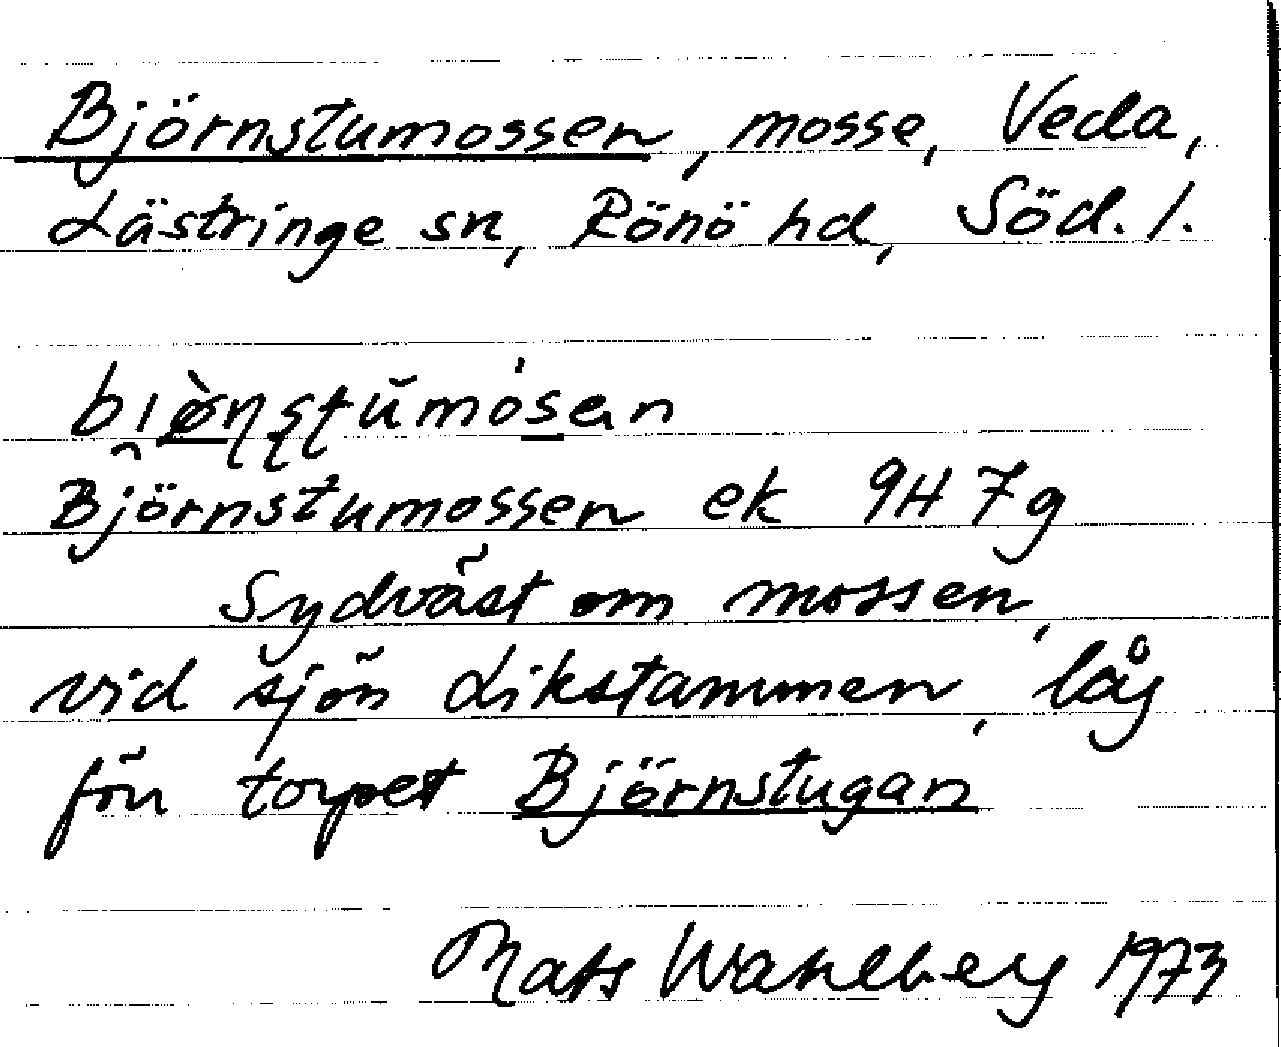 Björnstumossen, mosse, Veda,
Lästringe sn, Rönö hd, Söd. l.
Björnstumossen ek 9H 7g
Sydväst om mossen,
vid sjön Likstammen, låg
förr torpet Björnstugan
Mats Wahlberg 1973